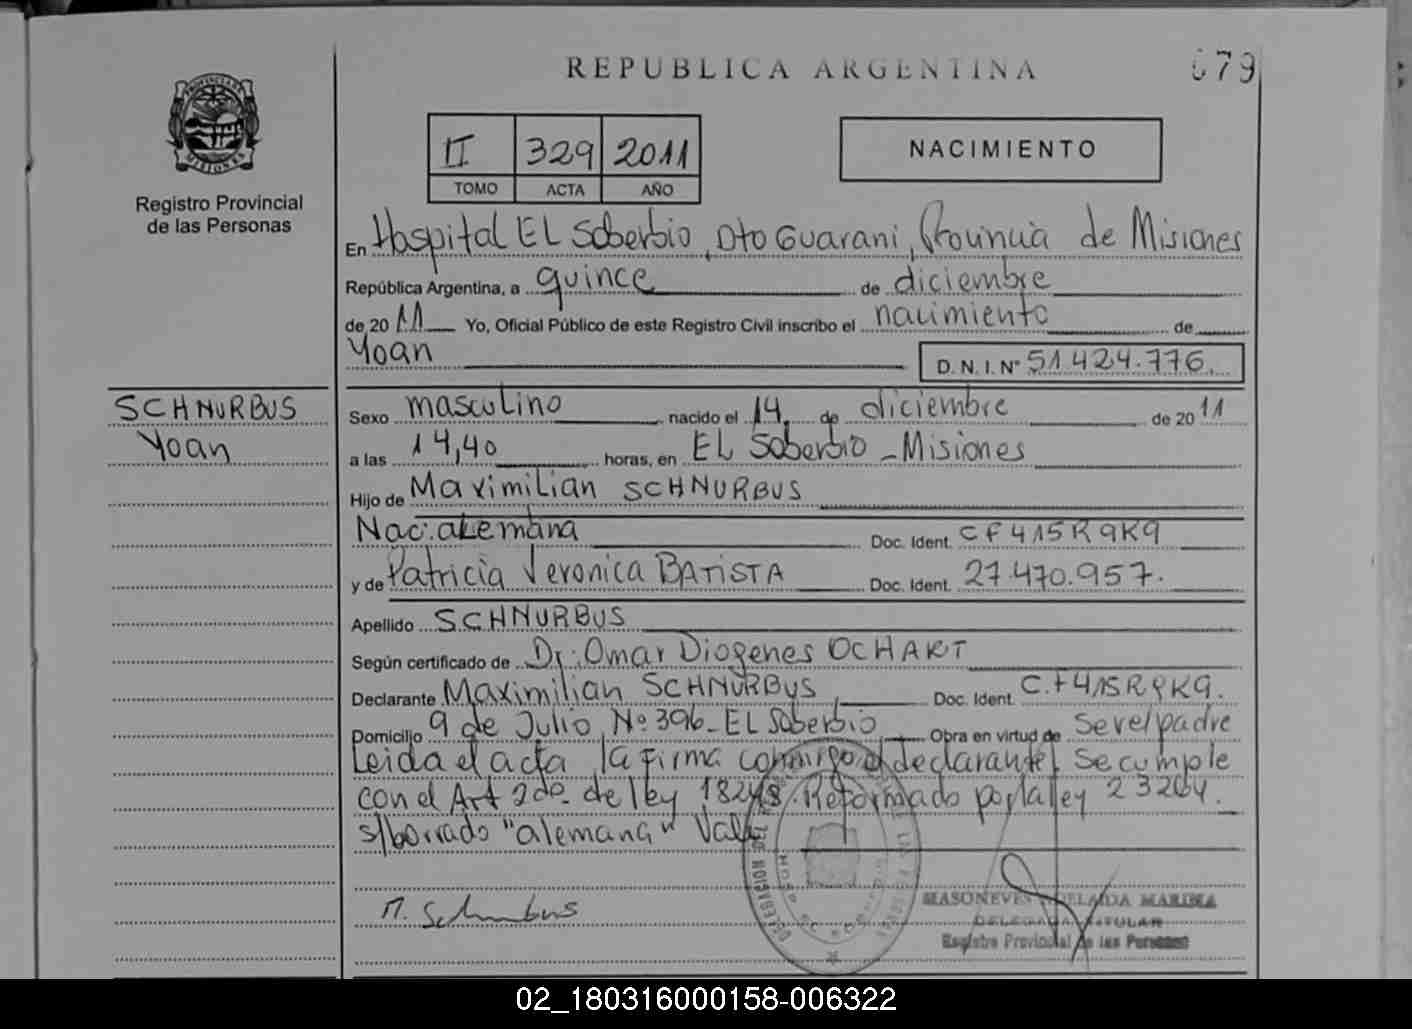 REPUBLICA ARGENTINA
679
PROVINCIA DE
MISIONES
Registro Provincial
de las Personas
II 329 2011
TOMO ACTA AÑO
NACIMIENTO
En Hospital EL Soberbio, Dto Guarani, Provincia de Misiones
República Argentina, a quince de diciembre
de 2011 Yo, Oficial Público de este Registro Civil inscribo el nacimiento de
Yoan
D. N. I. Nº 51.424.776.
SCHNURBUS
Yoan
Sexo masculino nacido el 14 de diciembre de 2011
a las 14,40 horas, en EL Soberbio - Misiones
Hijo de Maximilian SCHNURBUS
Nac: alemana Doc. Ident. CF415R9K9
y de Patricia Veronica BATISTA Doc. Ident. 27.470.957.
Apellido SCHNURBUS
Según certificado de Dr: Omar Diogenes OCHART
Declarante Maximilian SCHNURBUS Doc. Ident. C.F415R9K9.
Domicilio 9 de Julio Nº 396 - EL Soberbio Obra en virtud de Ser el padre
Leida el acta la firma conmigo el declarante. Se cumple
con el Art 2do. de ley 18248. Reformado por la ley 23264.
s/borrado "alemana" Vale
M. Schnurbus
MASONEVES ADELAIDA MARINA
DELEGADA TITULAR
Registro Provincial de las Personas
02_180316000158-006322